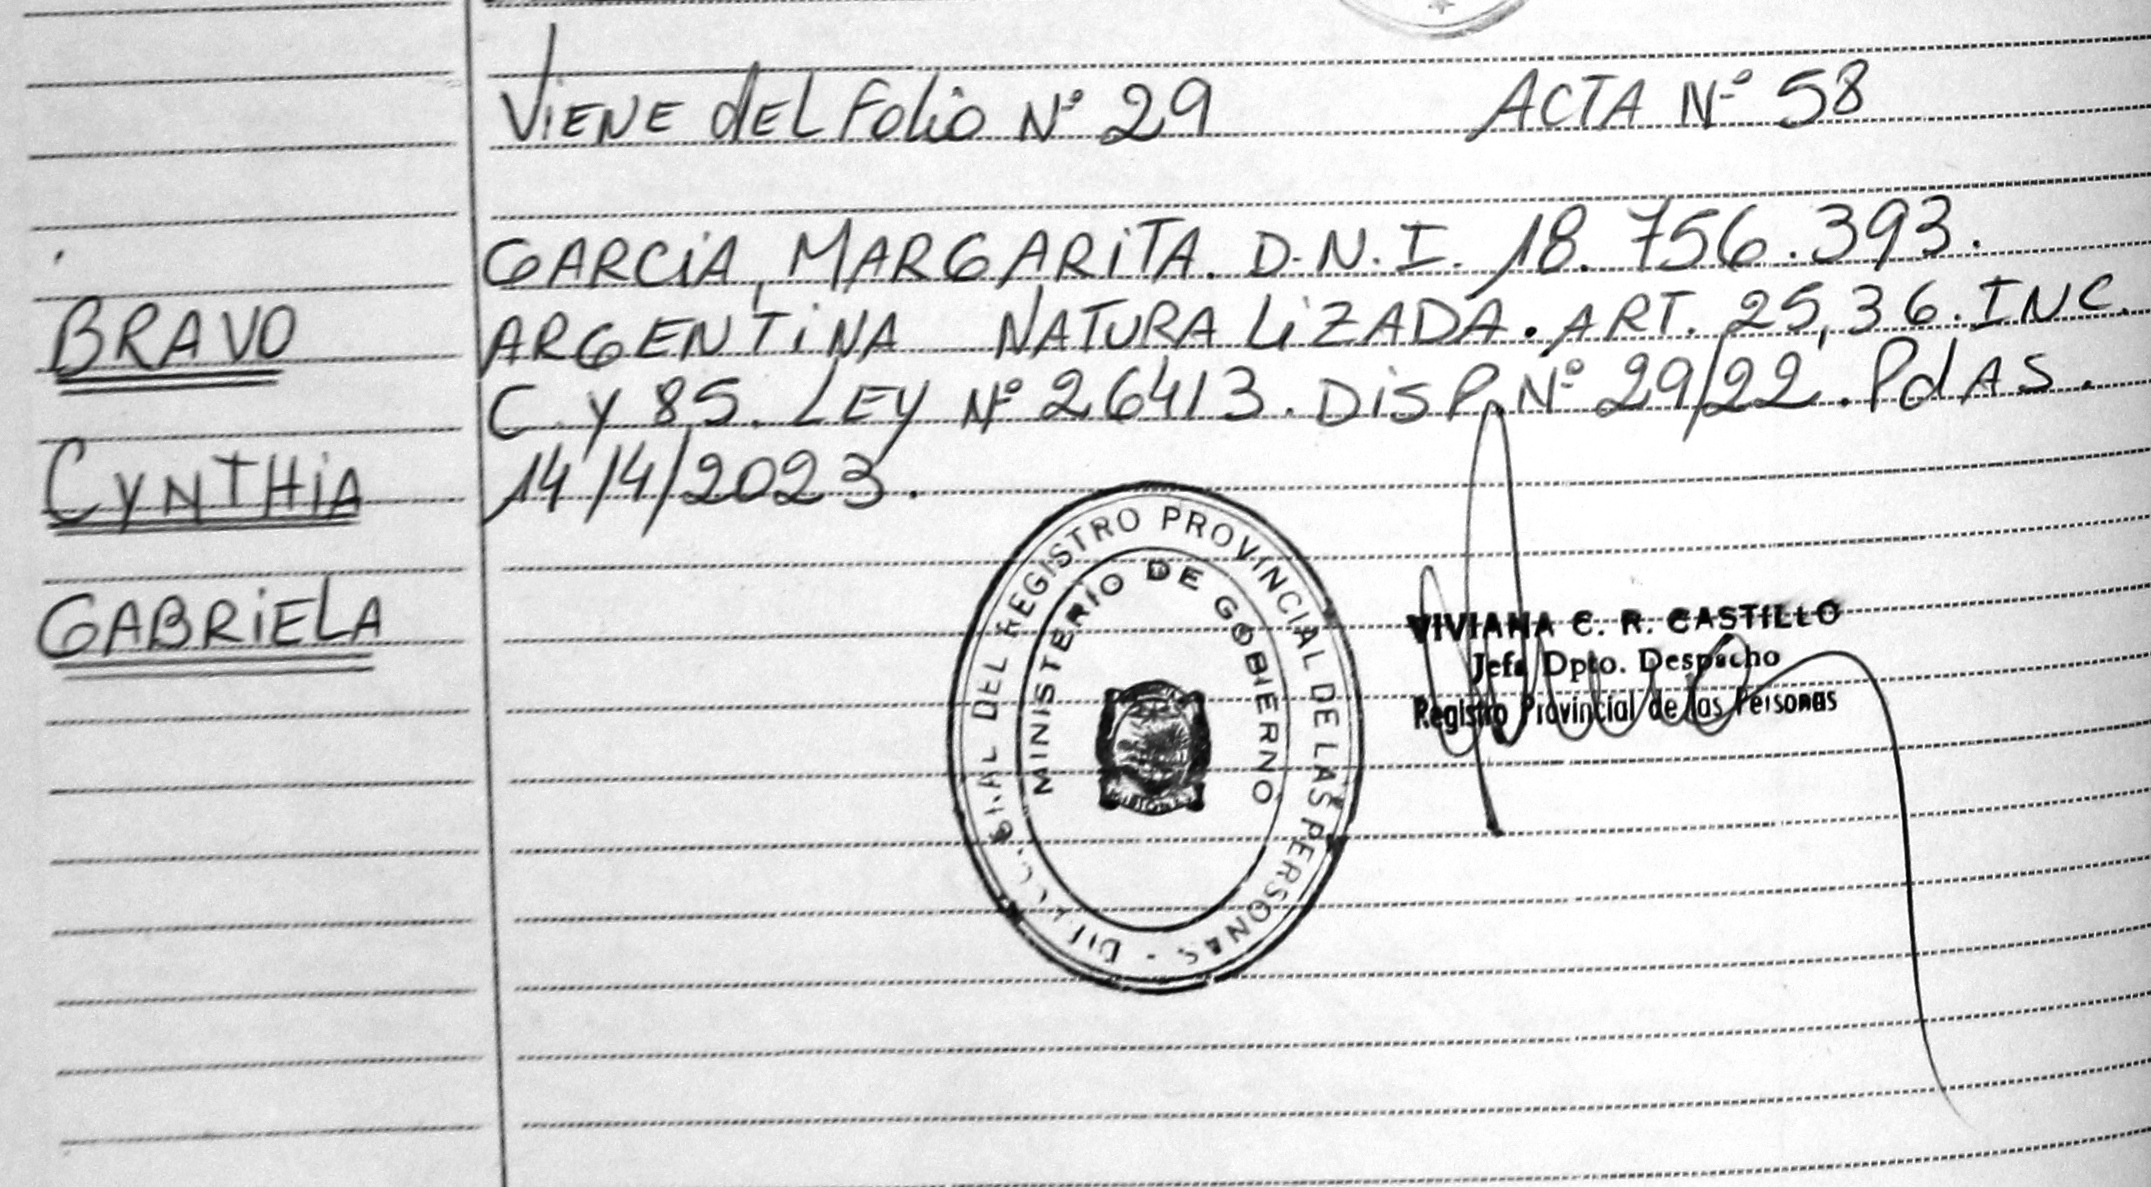 Viene del Folio Nº 29 ACTA Nº 58
GARCIA, MARGARITA. D.N.I. 18.756.393.
ARGENTINA NATURALIZADA. ART. 25,36. INC.
C Y 85. LEY Nº 26413. DISP. Nº 29/22. PdAS.
14/4/2023.
BRAVO
CYNTHIA
GABRIELA
REGISTRO PROVINCIAL DE LAS PERSONAS
GRAL DEL
MINISTERIO DE GOBIERNO
MISIONES
VIVIANA C. R. CASTILLO
Jefa Dpto. Despacho
Registro Provincial de las Personas